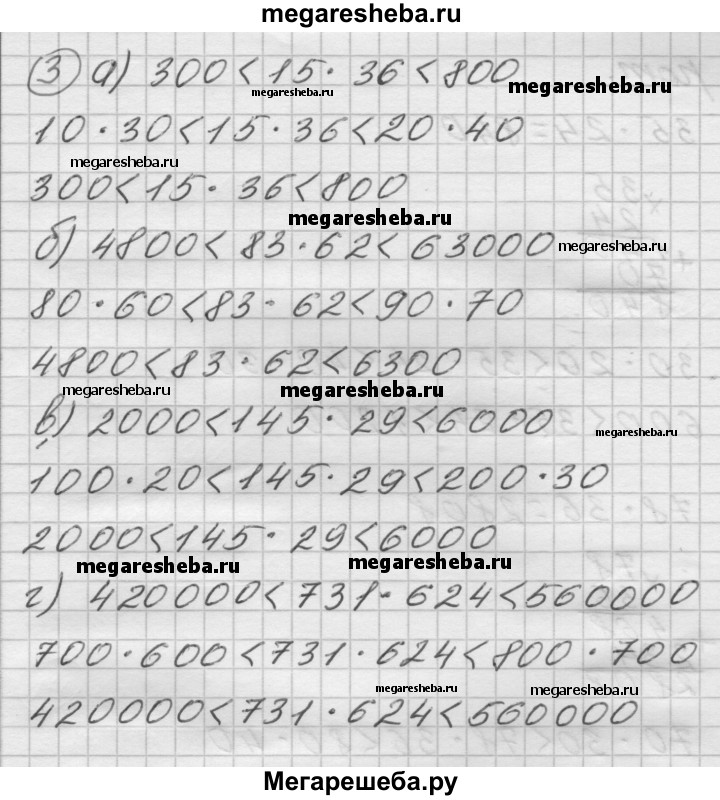 megaresheba.ru
3 а) 300<15·36<800
megaresheba.ru
megaresheba.ru
10·30<15·36<20·40
megaresheba.ru
300<15·36<800
megaresheba.ru
б) 4800<83·62<63000
megaresheba.ru
80·60<83·62<90·70
4800<83·62<6300
megaresheba.ru
megaresheba.ru
в) 2000<145·29<6000
megaresheba.ru
100·20<145·29<200·30
2000<145·29<6000
megaresheba.ru
megaresheba.ru
г) 420000<731·624<560000
700·600<731·624<800·700
megaresheba.ru
megaresheba.ru
420000<731·624<560000
Мегарешеба.ру